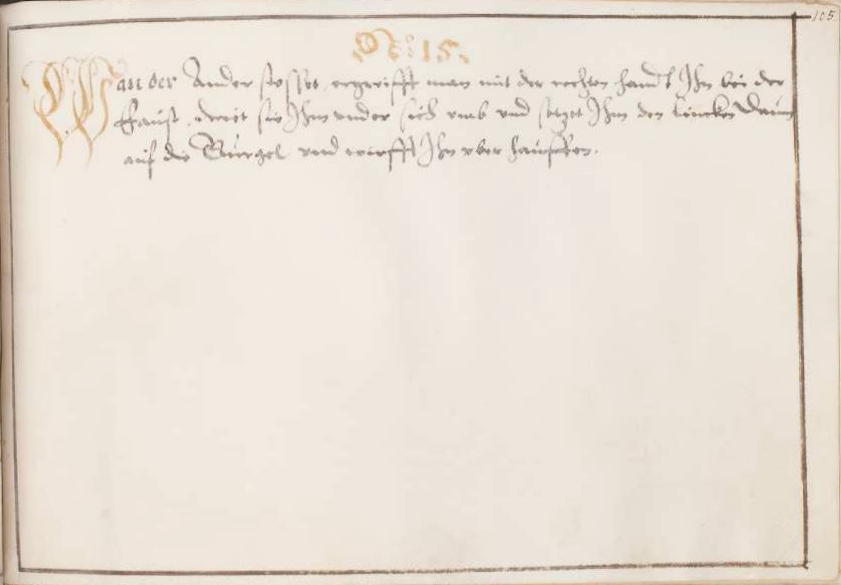 105
No: 15.
Wan der Ander stosset, ergreifft man mit der rechten handt Ihn bei der
Faust, dreet sie Ihm under sich umb und setzet Ihm den lincken Daum
auf die Gurgel und wirfft Ihn uber hauffen.